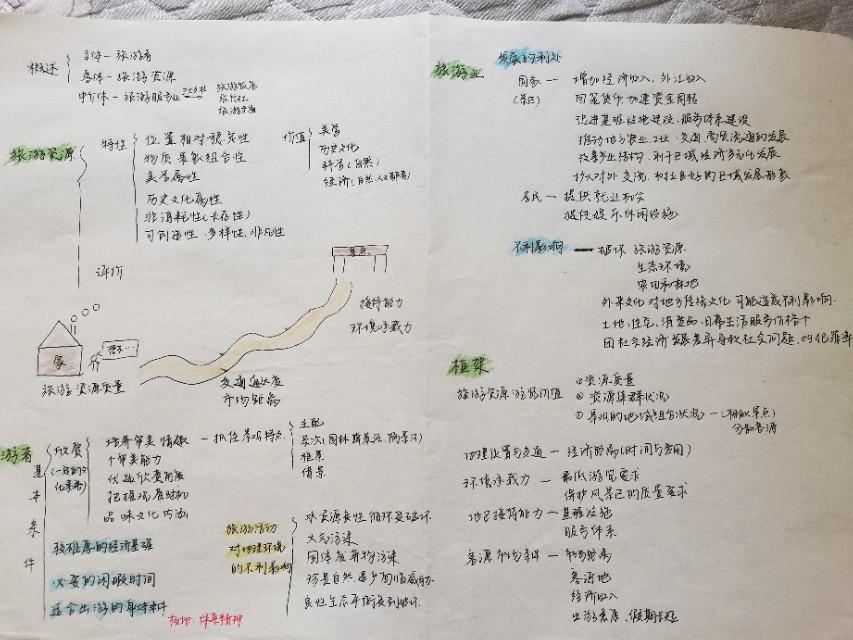 概述
主体—旅游者
客体—旅游资源
中介体—旅游服务业
旅行社
旅游资源
特性
位置相对稳定性
物质景象组合性
美学属性
历史文化属性
非消耗性(永存性)
可创造性、多样性、非凡性
价值
美学
历史文化
科学(自然)
经济(自然、人文都有)
评价
景点
接待能力
环境承载力
家
旅游资源质量
交通通达度
市场距离
游者
基本条件
欣赏
培养审美情趣
个审美能力
优选欣赏角度
把握观赏时机
品味文化内涵
抓住景观特点
主配
框景
借景
较雄厚的经济基础
必要的闲暇时间
适合出游的身体条件
探奥精神
旅游活动
对地理环境
的不利影响
水资源良性循环受破坏
大气污染
固体废弃物污染
良性生态平衡受到破坏
旅游业
发展的利处
国家—增加经济收入、外汇收入
回笼货币,加速资金周转
促进基础设施建设、服务体系建设
推动地方农业、工业、交通、商贸流通的发展
改善产业结构,利于区域经济多元化发展
扩大对外交流,树立良好的区域发展形象
居民—提供就业机会
提供娱乐休闲设施
不利影响—破坏 旅游资源
生态环境
农田和林地
外来文化对地方传统文化可能造成不利影响
土地、住宅、消费品、日常生活服务价格个
因社会经济发展差异导致社会问题,例犯罪率
框架
旅游资源游览价值
①资源质量
②资源集群状况
③景观的地域组合状况—(相似景点)
分散客源
地理位置与交通—经济距离(时间与费用)
环境承载力—最低游览要求
保护风景区的质量要求
地区接待能力—基础设施
服务体系
客源市场条件—市场距离
客源地
经济收入
出游意愿、假期长短